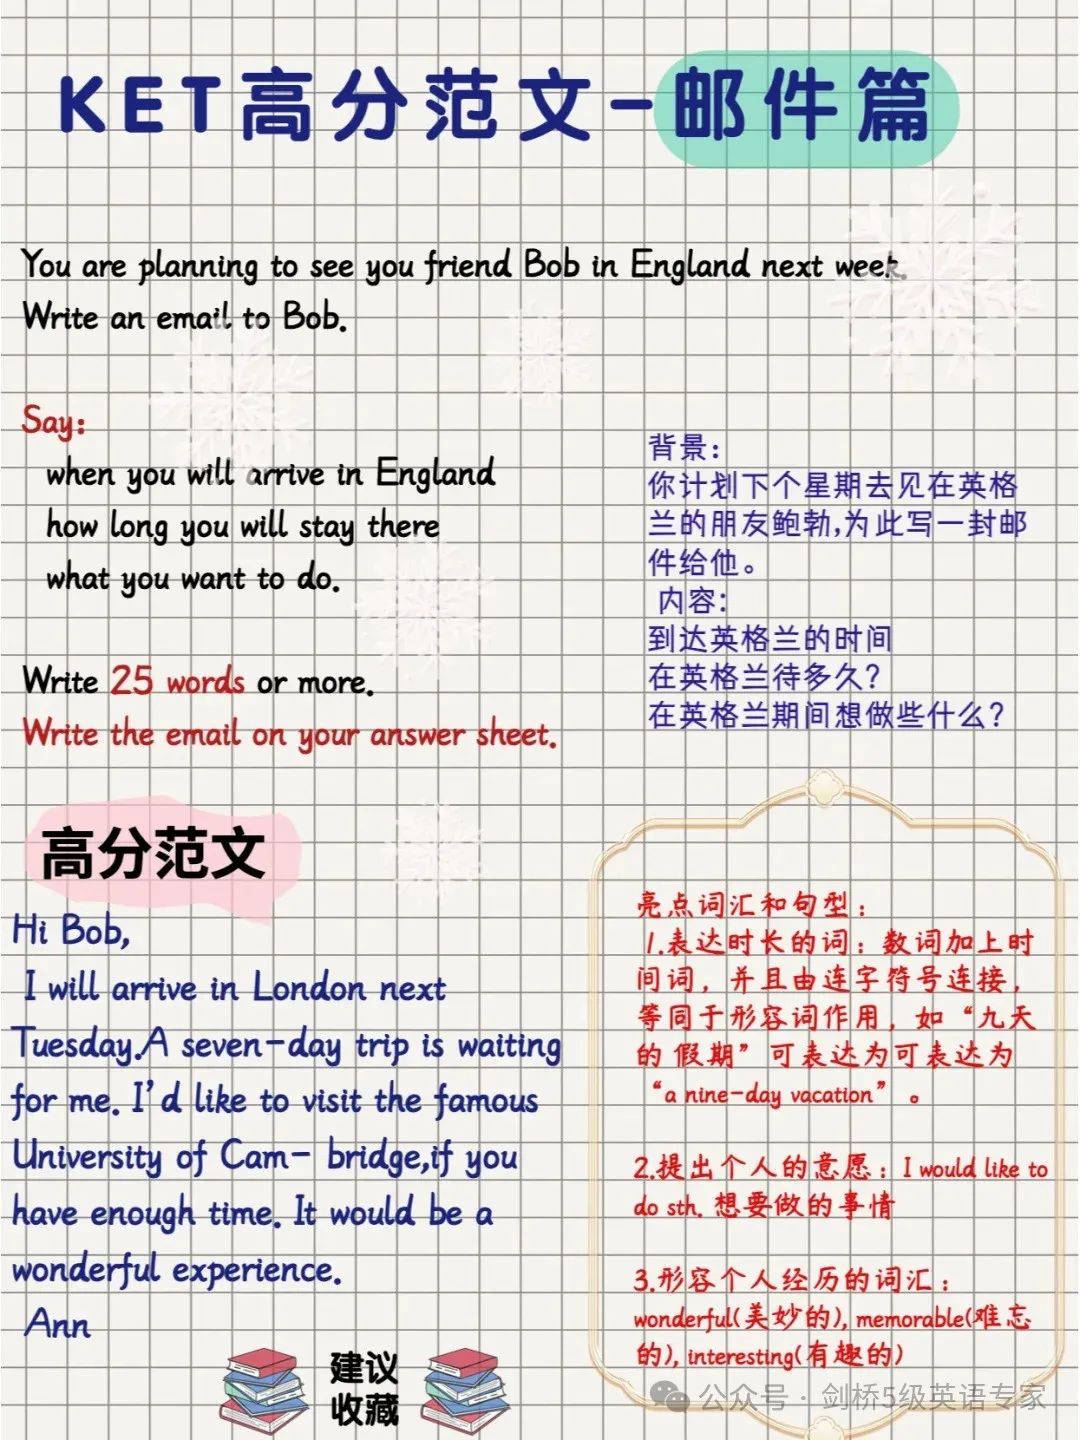 KET高分范文-邮件篇
You are planning to see you friend Bob in England next week.
Write an email to Bob.
Say:
when you will arrive in England
how long you will stay there
what you want to do.
Write 25 words or more.
Write the email on your answer sheet.
背景：
你计划下个星期去见在英格
兰的朋友鲍勃,为此写一封邮
件给他。
内容：
到达英格兰的时间
在英格兰待多久？
在英格兰期间想做些什么？
高分范文
Hi Bob,
I will arrive in London next
Tuesday.A seven-day trip is waiting
for me. I'd like to visit the famous
University of Cam- bridge,if you
have enough time. It would be a
wonderful experience.
Ann
亮点词汇和句型：
1.表达时长的词：数词加上时
间词，并且由连字符号连接，
等同于形容词作用，如“九天
的 假期”可表达为可表达为
“a nine-day vacation”。
2.提出个人的意愿：I would like to
do sth. 想要做的事情
3.形容个人经历的词汇：
wonderful(美妙的), memorable(难忘
的), interesting(有趣的)
建议
收藏
公众号·剑桥5级英语专家